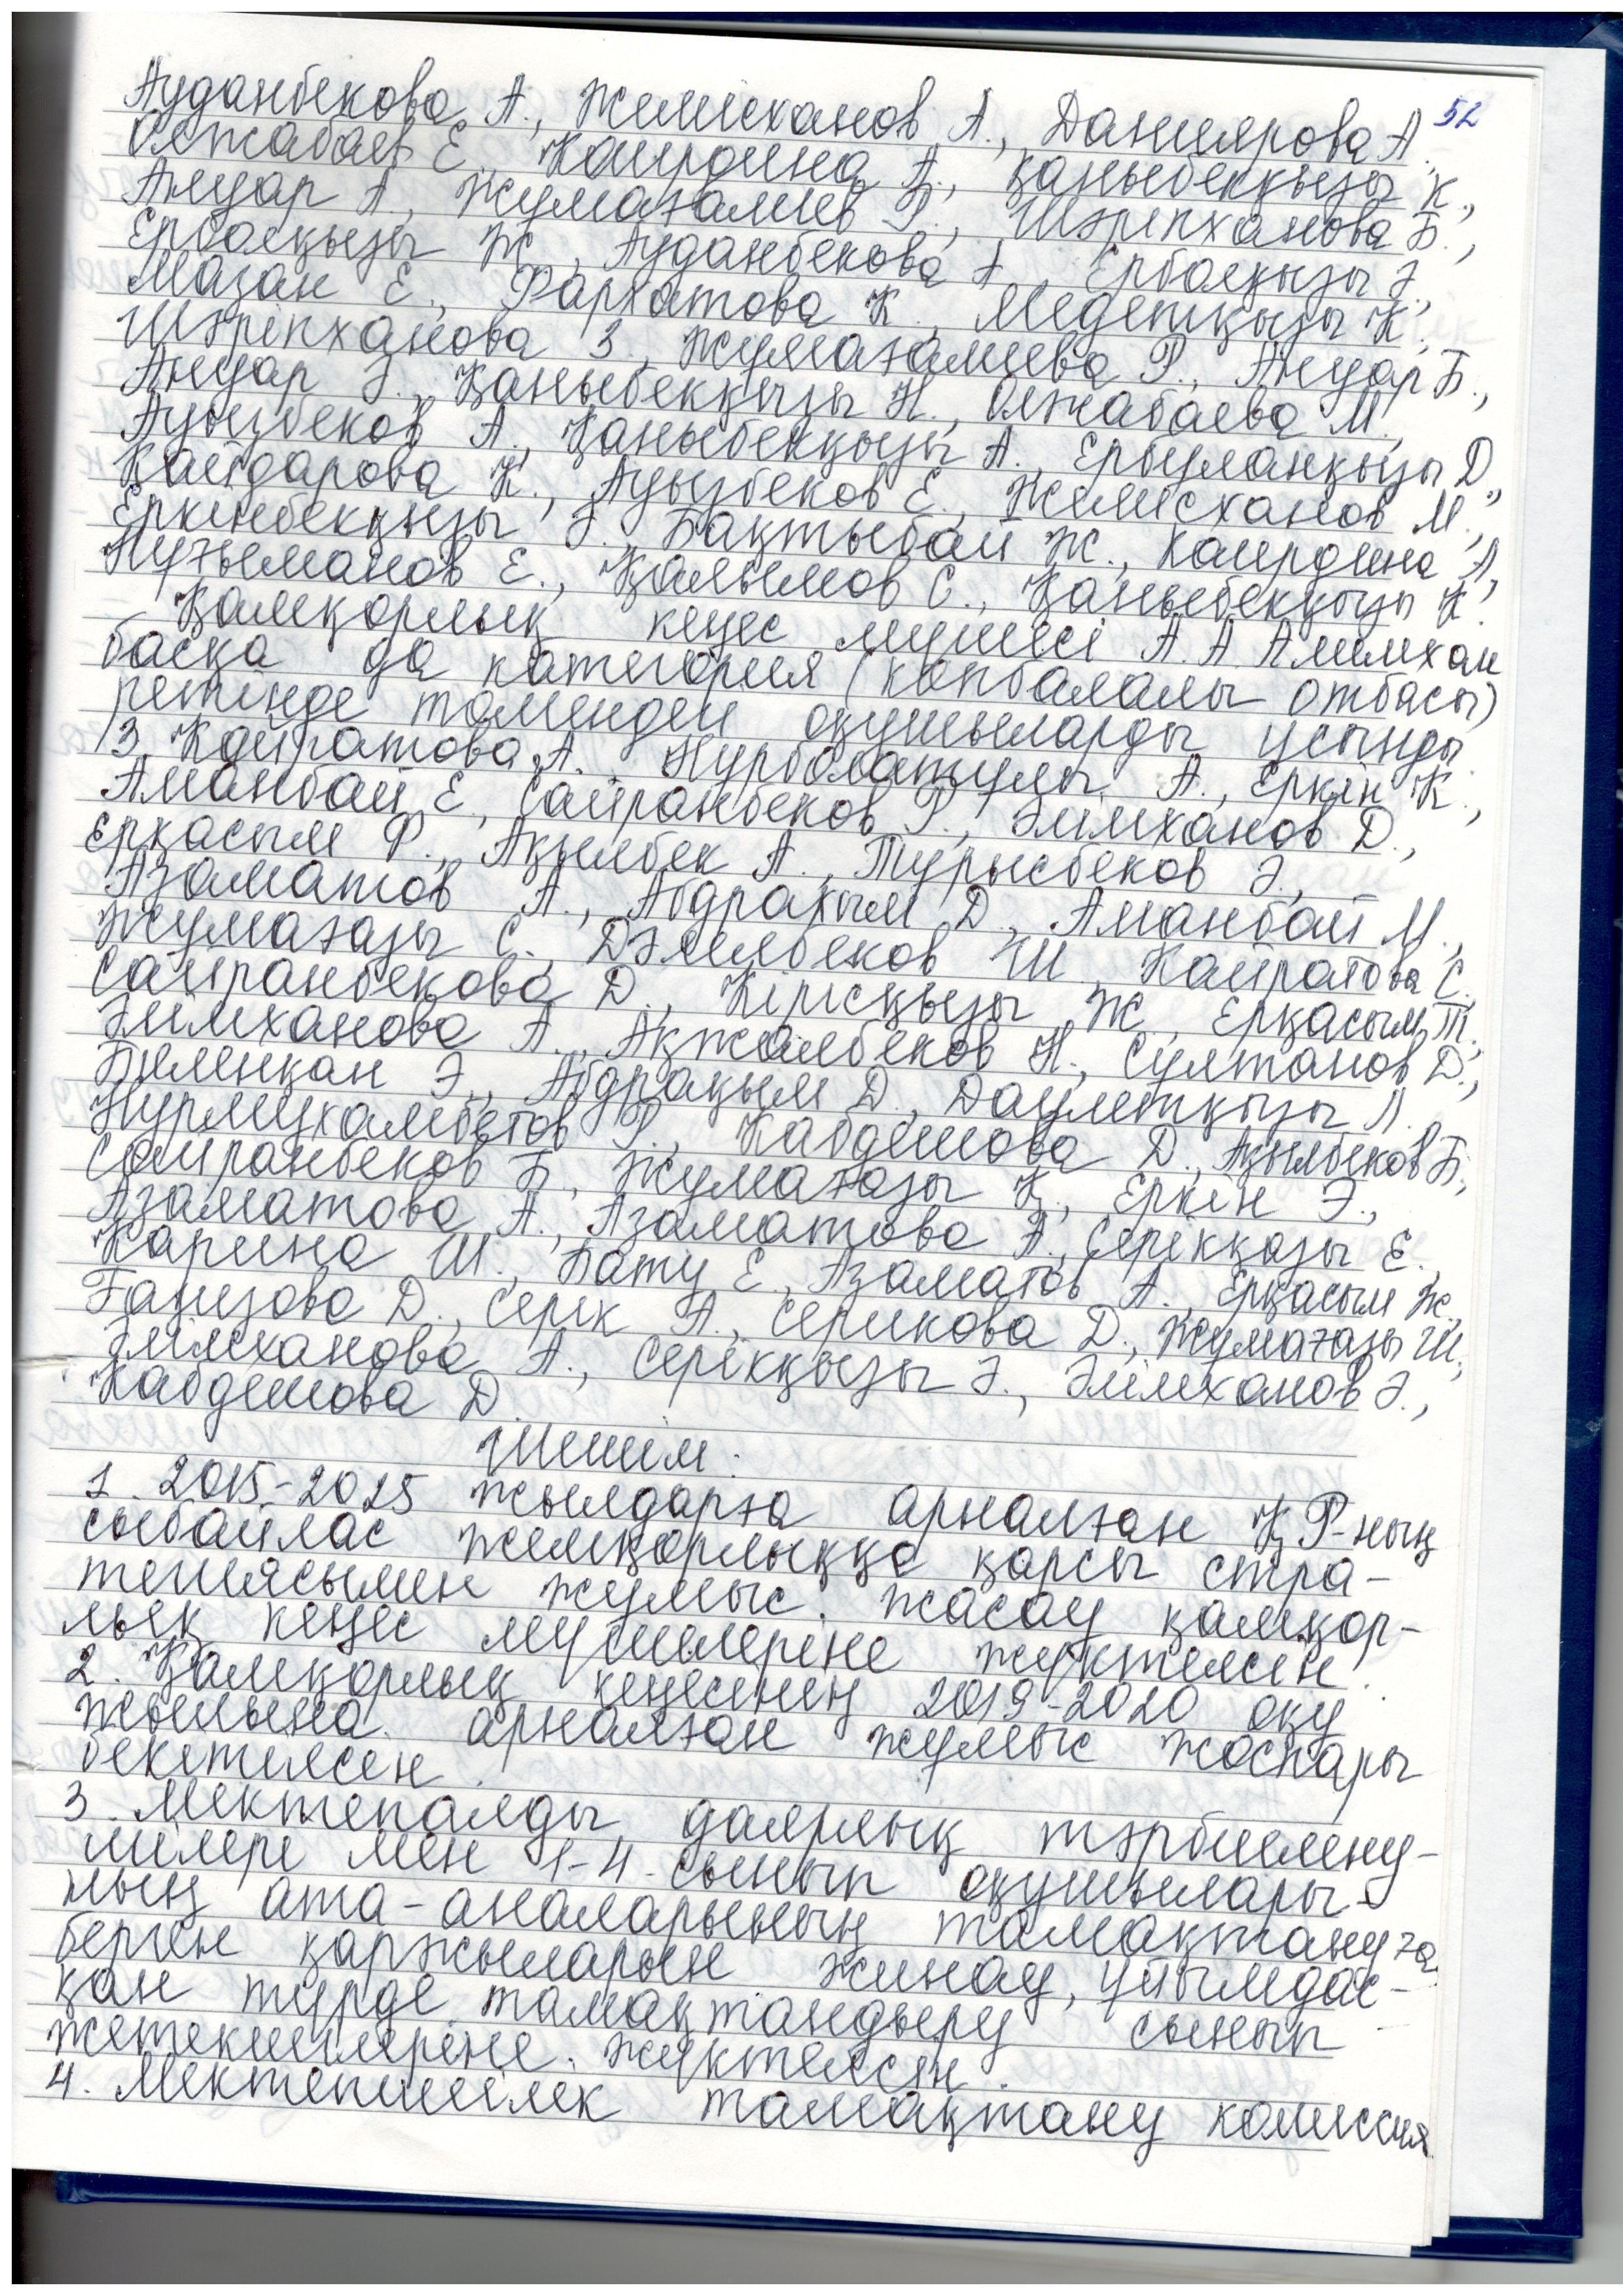 52
Ауданбекова А., Жемисханов А., Даниярова А.,
Олжабаев Е., Каирдина А., Қаныбекқызы К.,
Ануар А., Жумағалиев Р., Шәріпханова Б.,
Ерболқызы Ж., Ауданбекова А., Ерболқызы Ә.,
Мазан Е., Фархатова К., Медетқызы К.,
Шәріпханова З., Жумағалиева Р., Ануар Б.,
Ануар Ә., Қаныбекқызы Н., Олжабаева М.,
Ауызбеков А., Қаныбекқызы А., Ерыуланқызы Д.,
Кайдарова К., Ауызбеков Е., Жемисханов М.,
Еркінбекқызы Ә., Бақтыбай Ж., Каирдина А.,
Нуғыманов Е., Қалымов С., Қаныбекқызы К.
Қамқорлық кеңес мүшесі А.А. Әлімхан
басқа да категория (көпбалалы отбасы)
ретінде төмендегі оқушыларды ұсынды
З. Кайратова А., Нурболатұлы А., Еркін К.,
Аманбай Е., Сайранбеков Р., Әлімханов Д.,
Ерқасым Ф., Ақылбек А., Турысбеков Ә.,
Азаматов А., Абдрахым Д., Аманбай М.,
Жумағазы С., Дәлелбеков Ш., Кайратова С.,
Сайранбекова Д., Кірісқызы Ж., Ерқасым Т.,
Әлімханова А., Ақжолбеков Н., Султанов Д.,
Биленқан Э., Абдрақым Д., Даулетқызы Л.
Нурмухамбетов Р., Кабдешова Д., Ақылбеков Б.,
Сайранбеков Б., Жумағазы Қ., Еркін Э.,
Азаматова А., Азаматова А., Серікқазы Е.,
Карина Ш., Бату Е., Азаматов А., Ерқасым Ж.,
Ғазизова Д., Серік А., Серикова Д., Жумағазы Ш.,
Әлімханова А., Серікқызы Ә., Әлімханов Ә.,
Кабдешова Д.
Шешім:
1. 2015-2025 жылдарға арналған ҚР-ның
сыбайлас жемқорлыққа қарсы стра-
тегиясымен жұмыс жасау қамқор-
лық кеңес мүшелеріне жүктелсін.
2. Қамқорлық кеңесінің 2019-2020 оқу
жылына арналған жұмыс жоспары
бекітілсін.
3. Мектепалды даярлық тәрбиелену-
шілері мен 1-4 сынып оқушылары-
ның ата-аналарының тамақтануға
берген қаржыларын жинау, ұйымдас-
қан түрде тамақтандыру сынып
жетекшілеріне жүктелсін.
4. Мектепішілік тамақтану комиссия